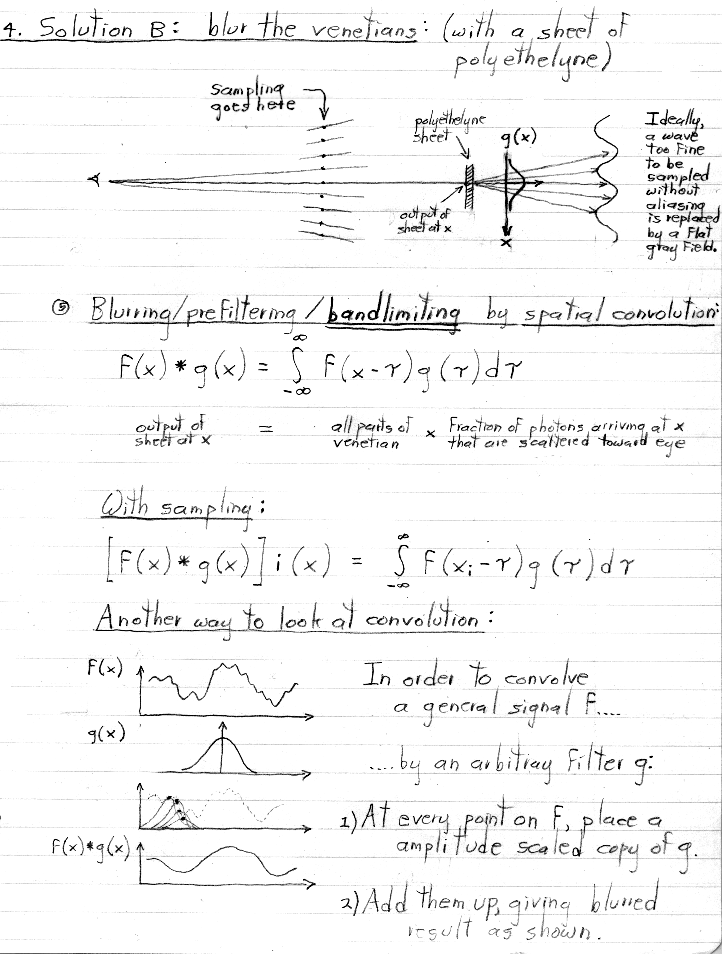 4. Solution B: blur the venetians: (with a sheet of
polyethelyne)
sampling
goes here
polyethelyne
sheet
g(x)
output of
sheet at x
x
Ideally,
a wave
too fine
to be
sampled
without
aliasing
is replaced
by a flat
gray field.
⑤ Blurring/prefiltering/bandlimiting by spatial convolution:
f(x) * g(x) = ∫_{-∞}^{∞} f(x-τ) g(τ) dτ
output of
sheet at x
=
all parts of
venetian
×
fraction of photons arriving at x
that are scattered toward eye
With sampling:
[f(x) * g(x)] i(x) = ∫_{-∞}^{∞} f(x_i-τ) g(τ) dτ
Another way to look at convolution:
f(x)
In order to convolve
a general signal f....
g(x)
....by an arbitray filter g:
1) At every point on f, place a
amplitude scaled copy of g.
f(x)*g(x)
2) Add them up, giving blurred
result as shown.